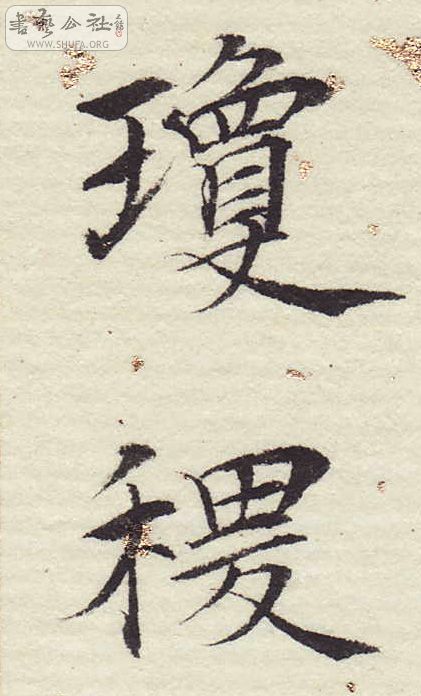 書藝公社
WWW.SHUFA.ORG
瓊稷